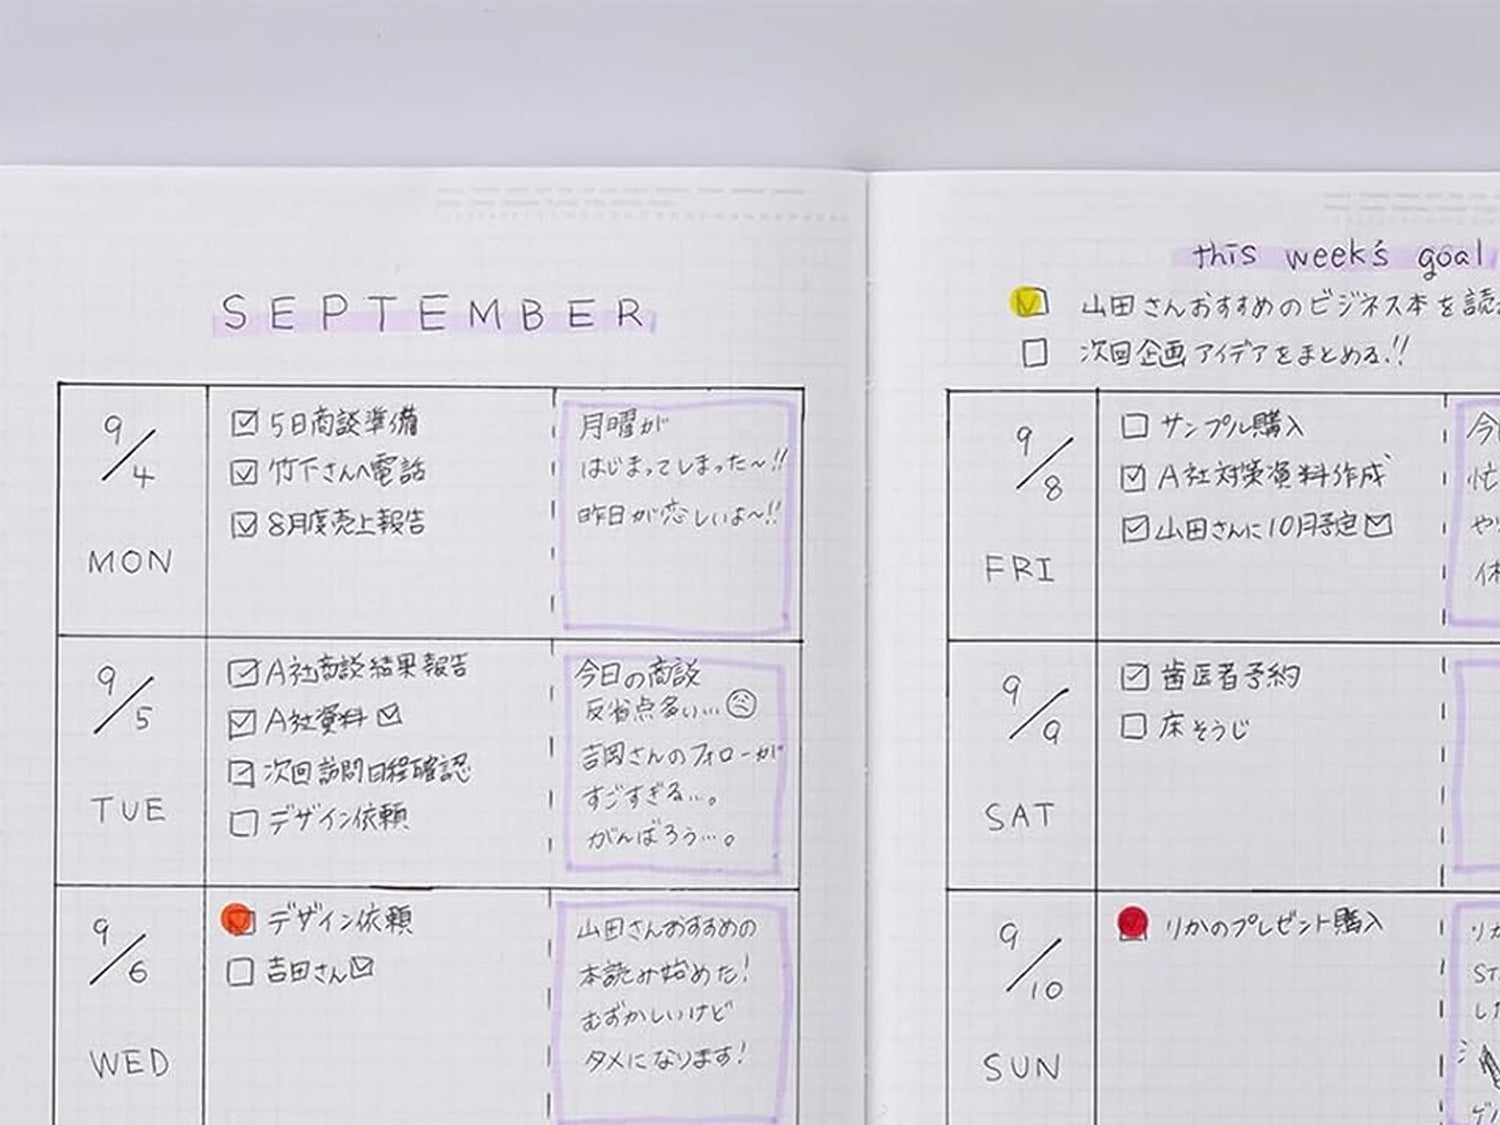 SEPTEMBER
9/4
MON
☑ 5日商談準備
☑ 竹下さんへ電話
☑ 8月度売上報告
月曜が
はじまってしまった〜!!
昨日が恋しいよ〜!!
9/5
TUE
☑ A社商談結果報告
☑ A社資料✉
☑ 次回訪問日程確認
☐ デザイン依頼
今日の商談
反省点多い…
吉岡さんのフォローが
すごすぎる…。
がんばろう…。
9/6
WED
☑ デザイン依頼
☐ 吉田さん✉
山田さんおすすめの
本読み始めた!
むずかしいけど
タメになります!
this week's goal
☑ 山田さんおすすめのビジネス本を読
☐ 次回企画アイデアをまとめる!!
9/8
FRI
☐ サンプル購入
☑ A社対策資料作成
☑ 山田さんに10月予定✉
今
忙
や
休
9/9
SAT
☑ 歯医者予約
☐ 床そうじ
9/10
SUN
☑ りかのプレゼント購入
りか
ST
した